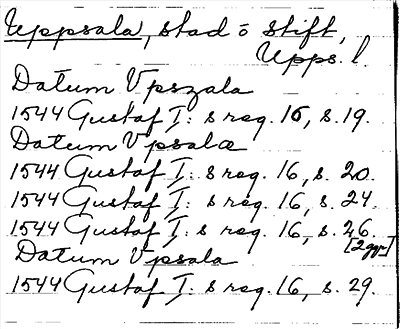 Uppsala, stad o stift,
Upps. l.
Datum Vpszala
1544 Gustaf I: s reg. 16, s. 19.
Datum Vpsala
1544 Gustaf I: s reg. 16, s. 20.
1544 Gustaf I: s reg. 16, s. 24.
1544 Gustaf I: s reg. 16, s. 26.
[2 ggr]
Datum Vpsala
1544 Gustaf I: s reg. 16, s. 29.